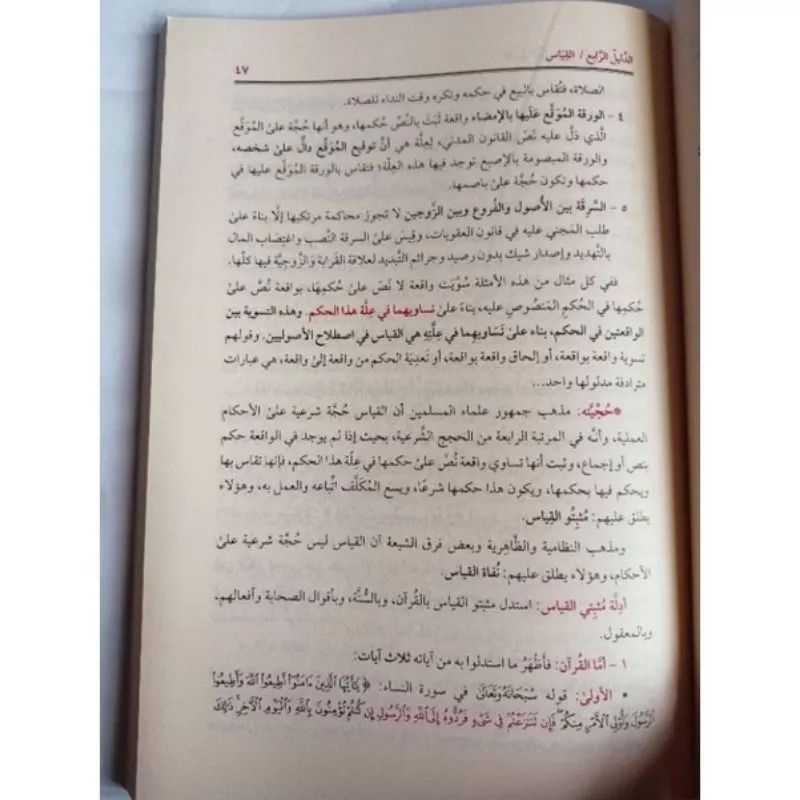 الدَّليلُ الرَّابع / القِيَاس
٤٧
الصلاة، فتُقاس بالبيع في حكمه وتكره وقت النداء للصلاة.
٤ - الورقة المُوَقَّع عَلَيها بالإمضاء واقعة ثَبَتَ بالنَّصِّ حُكمها، وهو أنها حُجَّة على المُوَقِّع
الَّذي دَلَّ عليه نَصّ القانون المدني، لِعِلَّة هي أنَّ توقيع المُوَقِّع دالٌّ على شخصه،
والورقة المبصومة بالإصبع توجد فيها هذه العِلَّة؛ فتقاس بالورقة المُوَقَّع عليها في
حكمها وتكون حُجَّة على باصمها.
٥ - السَّرِقَة بين الأُصول والفُروع وبين الزوجين لا تجوز محاكمة مرتكبها إلَّا بناءً على
طلب المَجني عليه في قانون العقوبات، وقِيسَ على السرقة النَّصب واغتِصَاب المال
بالتَّهديد وإصدار شيك بدون رصيد وجرائم التَّبديد لعلاقة القَرابة وَالزَّوجيَّة فيها كلّها.
ففي كل مثال من هذه الأمثلة سُوِّيَت واقعة لا نَصّ على حُكمِهَا، بواقعة نُصَّ على
حُكمِها في الحُكمِ المَنصُوص عليه، بناءً على تساويهما في عِلَّة هذا الحكم. وهذه التسوية بين
الواقعتين في الحكم، بناء على تَسَاوِيهما في عِلَّتِهِ هي القياس في اصطلاح الأصوليين. وقولهم
تسوية واقعة بواقعة، أو إلحاق واقعة بواقعة، أو تَعدِيَة الحكم من واقعة إلى واقعة، هي عبارات
مترادفة مدلولها واحد...
*حُجِّيَّته: مذهب جمهور علماء المسلمين أن القياس حُجَّة شرعية على الأحكام
العملية، وأنَّه في المرتبة الرابعة من الحجج الشَّرعية، بحيث إذا لم يوجد في الواقعة حكم
بنص أو إجماع، وثبت أنها تساوي واقعة نُصَّ على حكمها في عِلَّة هذا الحكم، فإنها تقاس بها
ويحكم فيها بحكمها، ويكون هذا حكمها شرعًا، ويسع المُكَلَّف اتِّباعه والعمل به، وهؤلاء
يطلق عليهم: مُثبِتُو القِيَاس.
ومذهب النظامية والظَّاهِرية وبعض فرق الشيعة أن القياس ليس حُجَّة شرعية على
الأحكام، وهؤلاء يطلق عليهم: نُفَاة القياس.
أدِلَّة مُثبِتي القياس: استدل مثبتو القياس بالقُرآن، وبالسُّنَّة، وبأقوال الصحابة وأفعالهم،
وبالمعقول.
١ - أمَّا القُرآن: فأَظْهَرُ ما استدلوا به من آياته ثلاث آيات:
• الأولى: قوله سُبْحَانَهُ وَتَعَالَىٰ في سورة النساء: ﴿يَٰٓأَيُّهَا ٱلَّذِينَ ءَامَنُوٓاْ أَطِيعُواْ ٱللَّهَ وَأَطِيعُواْ
ٱلرَّسُولَ وَأُوْلِي ٱلۡأَمۡرِ مِنكُمۡۖ فَإِن تَنَٰزَعۡتُمۡ فِي شَيۡءٖ فَرُدُّوهُ إِلَى ٱللَّهِ وَٱلرَّسُولِ إِن كُنتُمۡ تُؤۡمِنُونَ بِٱللَّهِ وَٱلۡيَوۡمِ ٱلۡأٓخِرِۚ ذَٰلِكَ